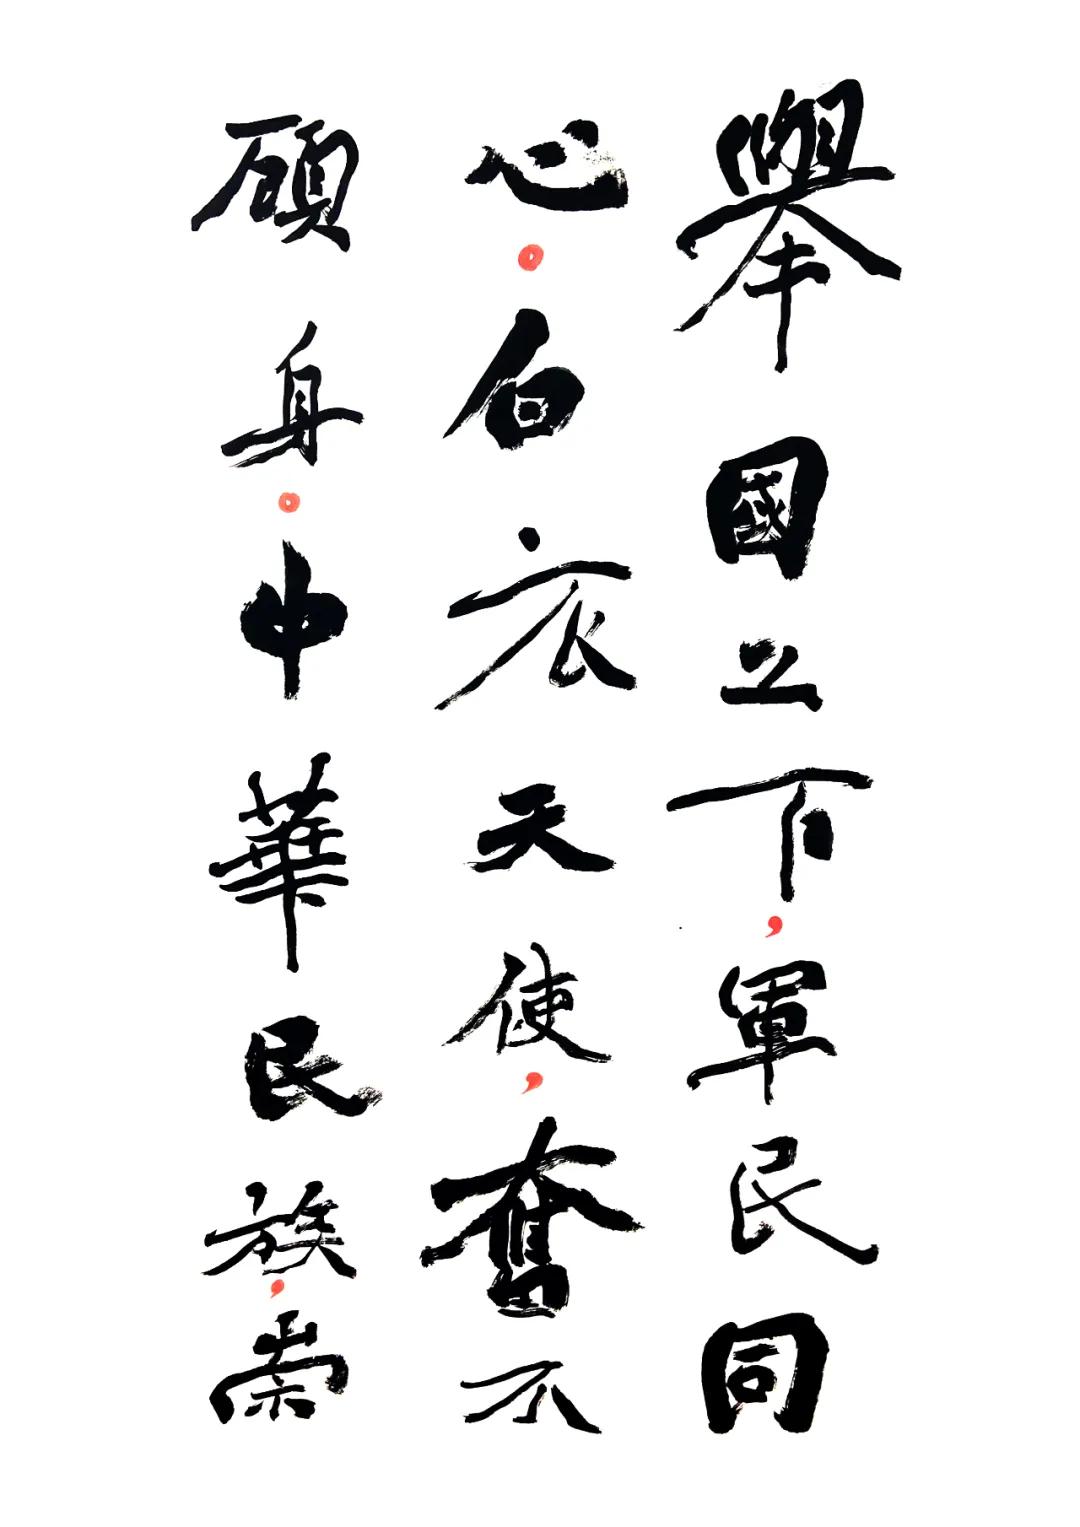 舉國上下，軍民同
心。白衣天使，奮不
顧身。中華民族，崇